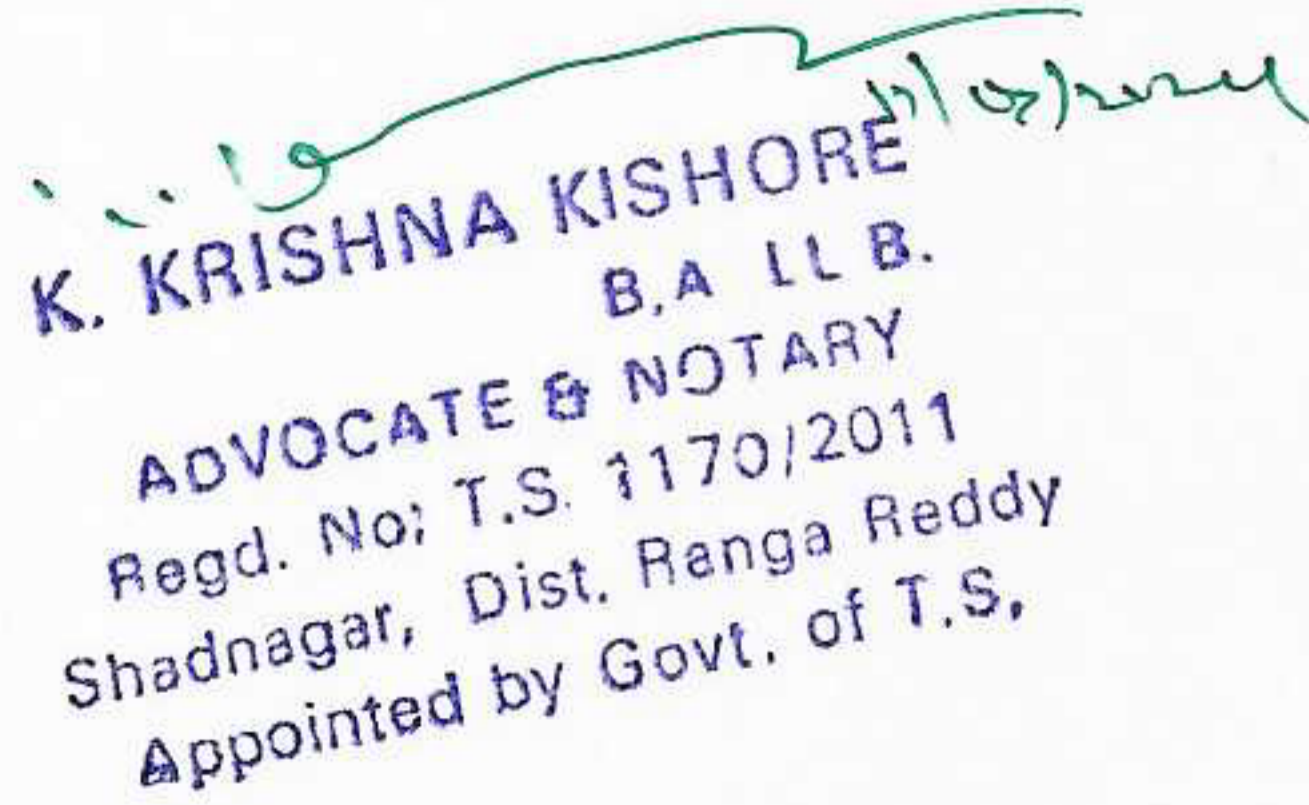 K. KRISHNA KISHORE
B.A LL B.
ADVOCATE & NOTARY
Regd. No: T.S. 1170/2011
Shadnagar, Dist. Ranga Reddy
Appointed by Govt. of T.S.